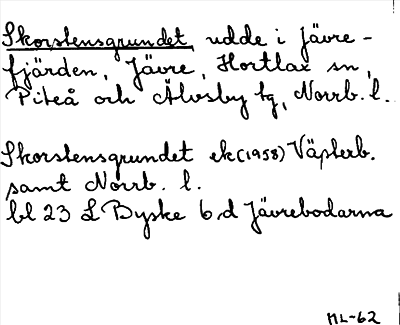 Skorstensgrundet, udde i Jävre-
fjärden, Jävre, Hortlax sn,
Piteå och Älvsby tg, Norrb. l.
Skorstensgrundet ek (1958) Västerb.
samt Norrb. l.
bl 23 L Byske 6 d Jävrebodarna
ML-62